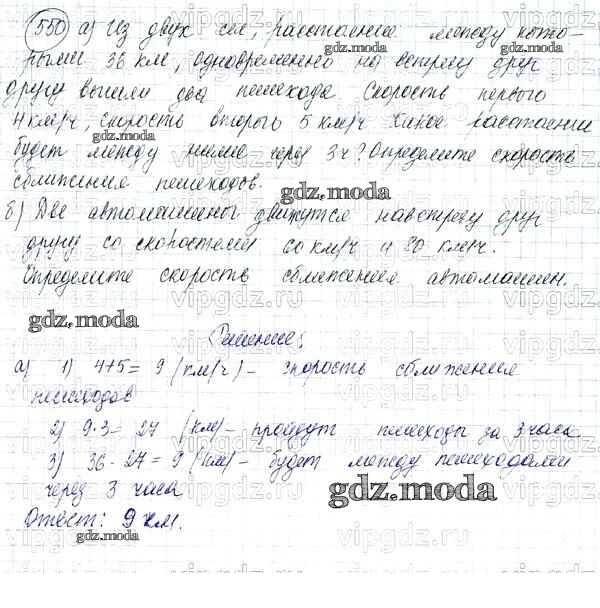 550 а) Из двух сёл, расстояние между кото-
рыми 36 км, одновременно на встречу друг
другу вышли два пешехода. Скорость первого
4 км/ч, скорость второго 5 км/ч. Какое расстояние
будет между ними через 3 ч? Определите скорость
сближения пешеходов.
б) Две автомашины движутся навстречу друг
другу со скоростями 60 км/ч и 80 км/ч.
Определите скорость сближения автомашин.
Решение:
а) 1) 4+5= 9 (км/ч) – скорость сближения
пешеходов
2) 9·3= 27 (км) – пройдут пешеходы за 3 часа
3) 36-27=9 (км) – будет между пешеходами
через 3 часа
Ответ: 9 км.
gdz.moda
gdz.moda
gdz.moda
gdz.moda
gdz.moda
gdz.moda
gdz.moda
gdz.moda
vipgdz.ru